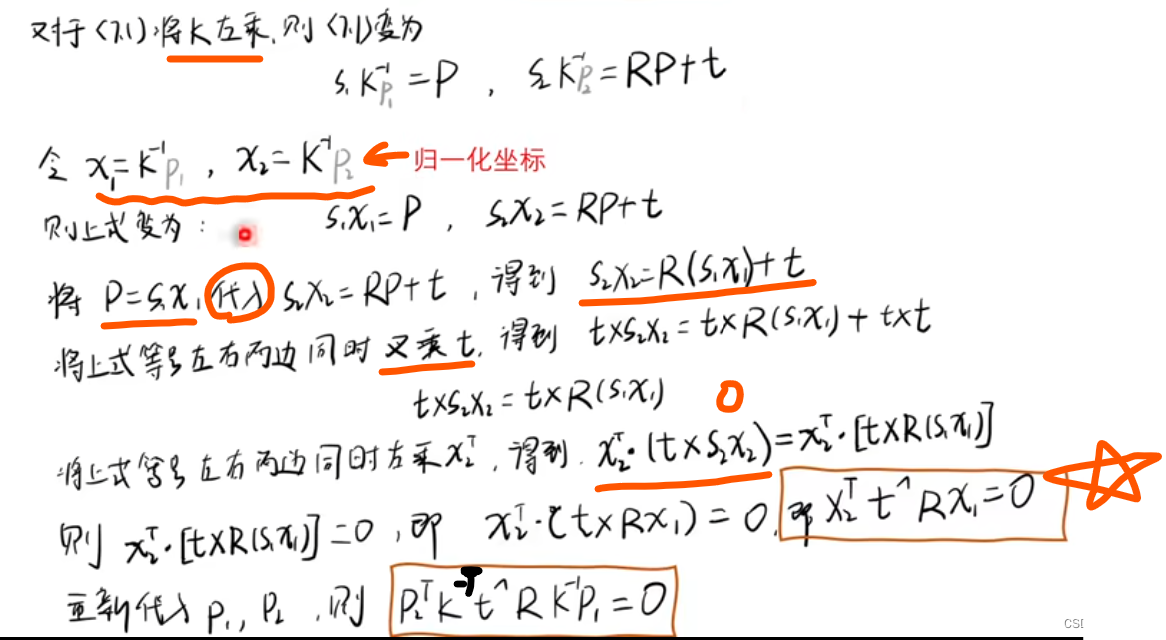 对于(7.1)将K左乘,则(7.1)变为
s₁K⁻¹p₁=P , s₂K⁻¹p₂=RP+t
令 x₁=K⁻¹p₁ , x₂=K⁻¹p₂ ← 归一化坐标
则上式变为: s₁x₁=P , s₂x₂=RP+t
将 P=s₁x₁ 代入 s₂x₂=RP+t ,得到 s₂x₂=R(s₁x₁)+t
将上式等号左右两边同时叉乘t,得到 t×s₂x₂=t×R(s₁x₁)+t×t
t×s₂x₂=t×R(s₁x₁)
0
将上式等号左右两边同时左乘x₂ᵀ,得到. x₂ᵀ·(t×s₂x₂)=x₂ᵀ·[t×R(s₁x₁)]
则 x₂ᵀ·[t×R(s₁x₁)]=0 ,即 x₂ᵀ·(t×Rx₁)=0,即 x₂ᵀt^Rx₁=0
重新代入 p₁, p₂ ,则 p₂ᵀK⁻ᵀt^RK⁻¹p₁=0